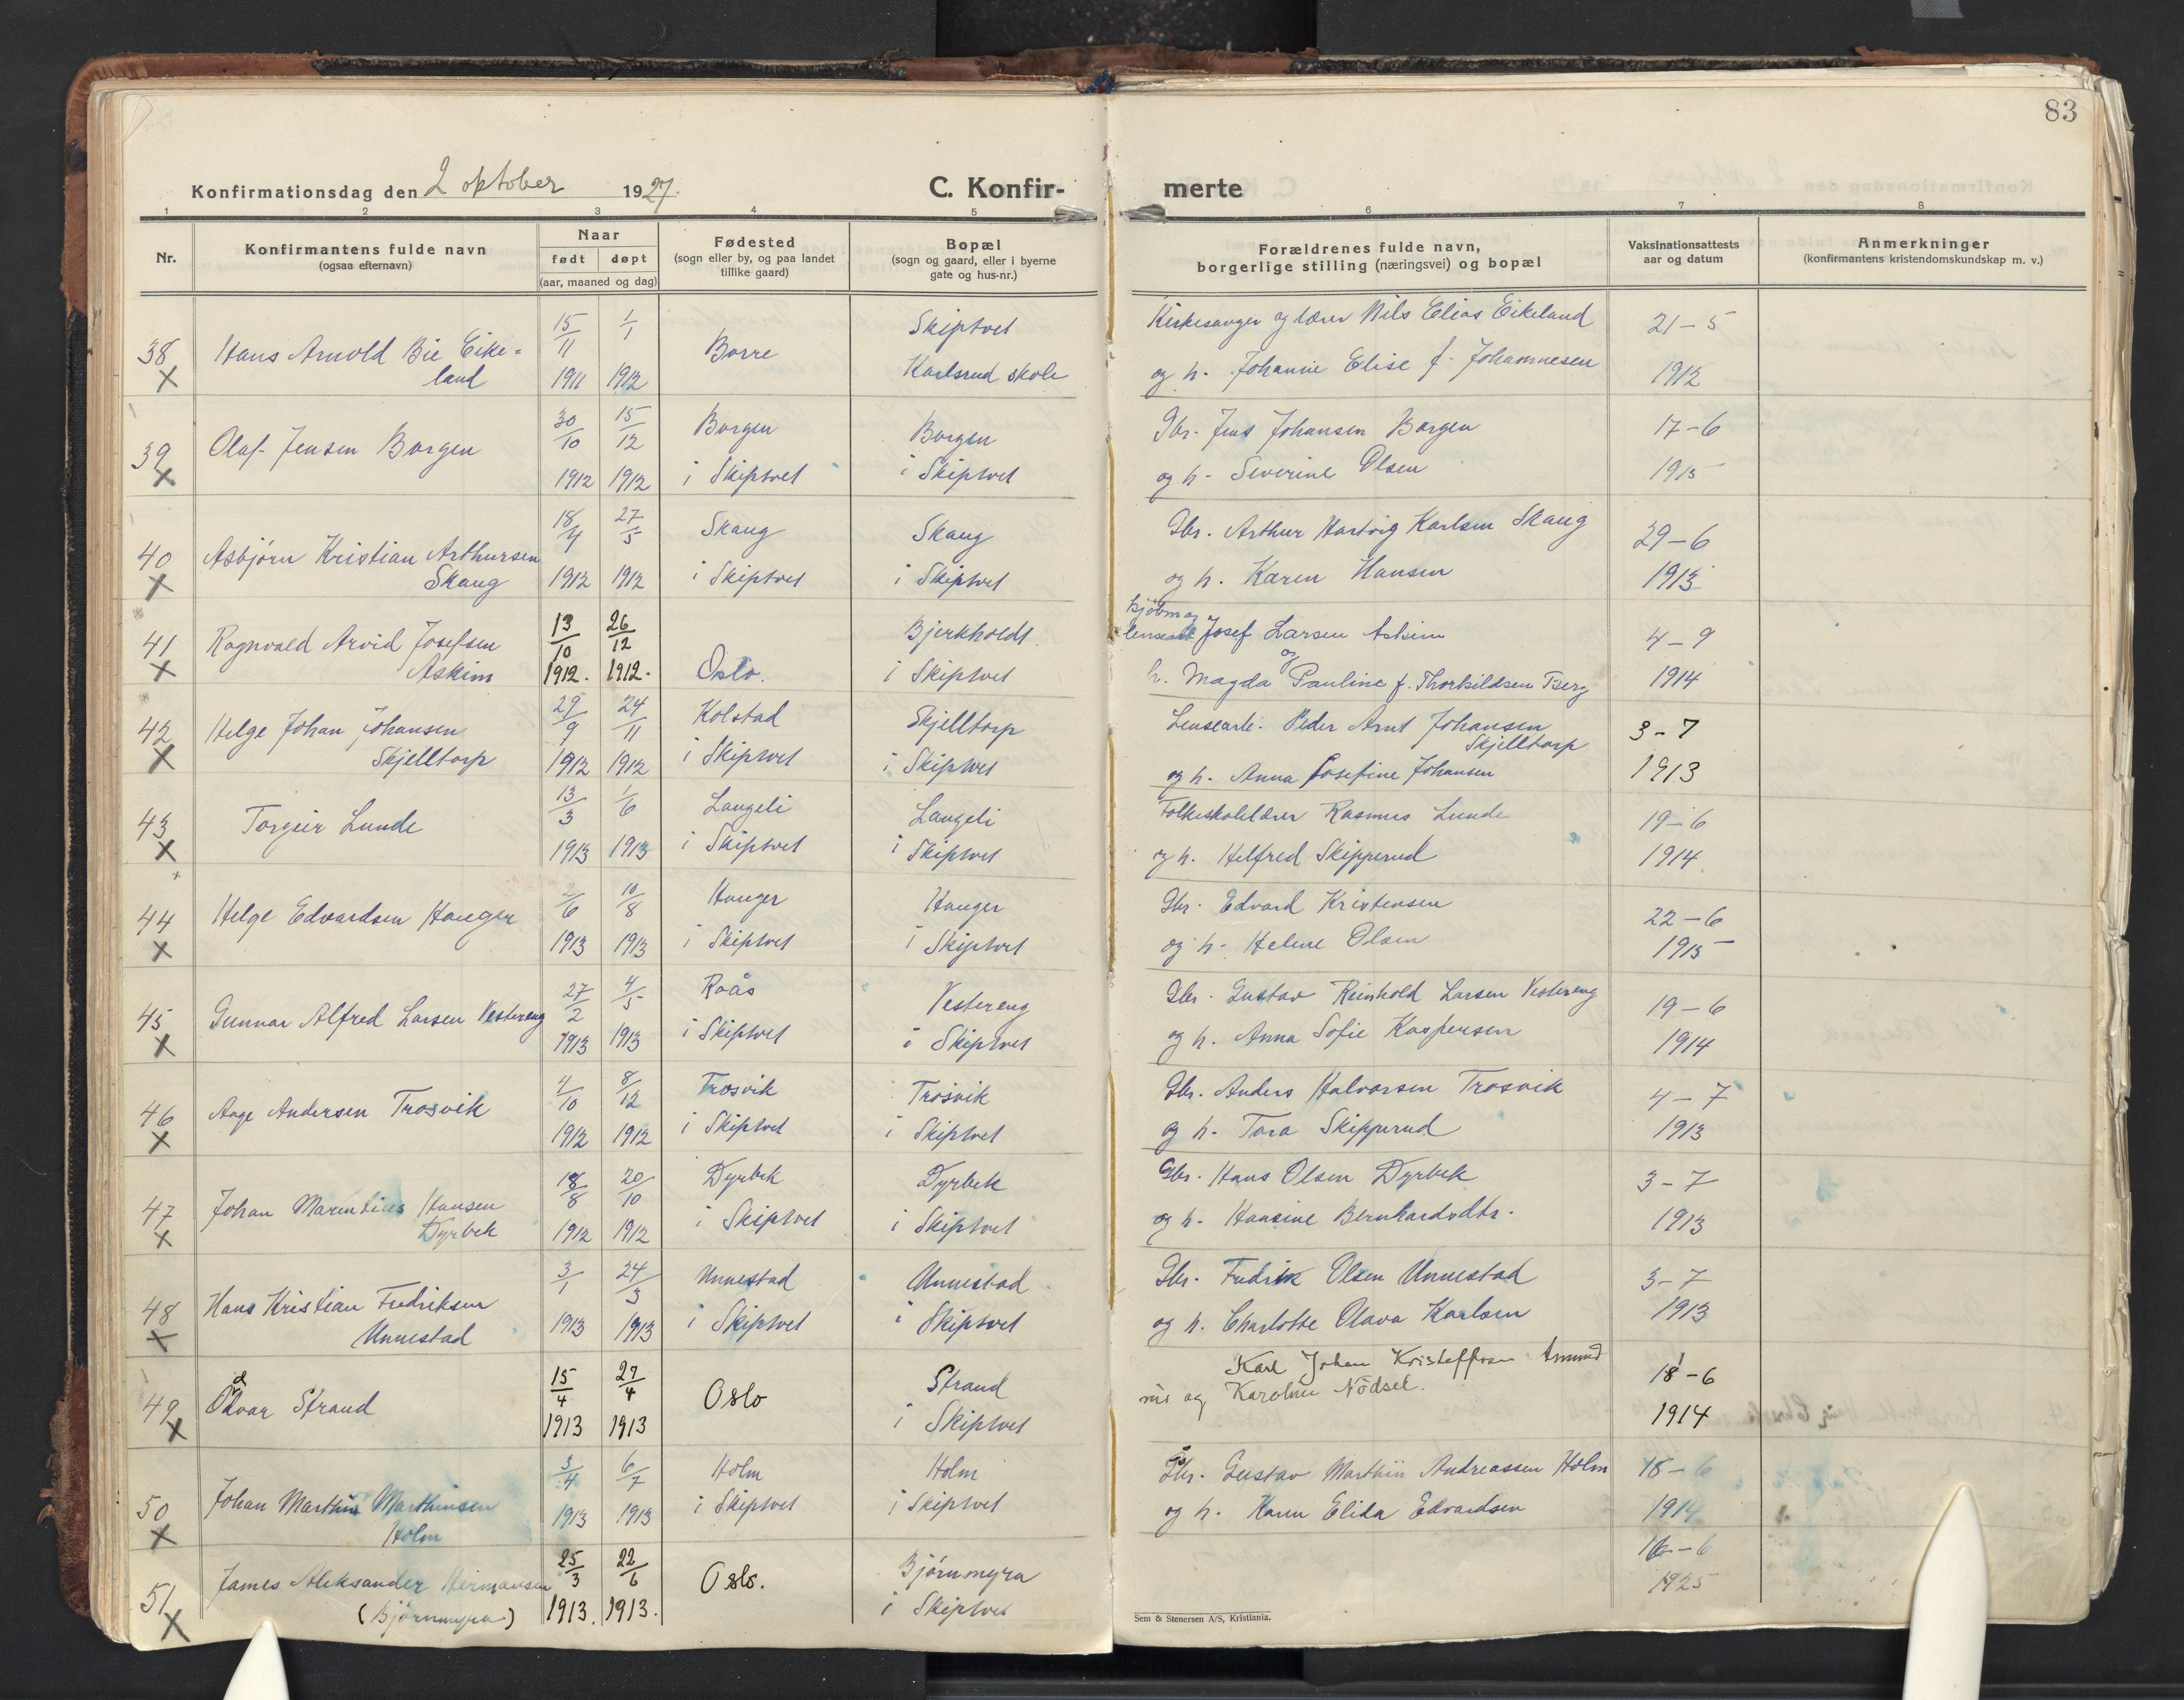 83
Konfirmationsdag den 2 oktober 1927.
C. Konfirmerte
1 2 3 4 5 6 7 8
Nr.
Konfirmantens fulde navn
(ogsaa efternavn)
Naar
født døpt
(aar, maaned og dag)
Fødested
(sogn eller by, og paa landet
tillike gaard)
Bopæl
(sogn og gaard, eller i byerne
gate og hus-nr.)
Forældrenes fulde navn,
borgerlige stilling (næringsvei) og bopæl
Vaksinationsattests
aar og datum
Anmerkninger
(konfirmantens kristendomskundskap m. v.)
15/11 1/1 Skiptvet Kirkesanger og lærer Nils Elias Eikeland 21-5
38 Hans Arnold Bie Eike= Borre
X land 1911 1912 Karlsrud skole og h. Johanne Elise f. Johannesen 1912
30/10 15/12 Borgen Borgen Gbr. Jens Johansen Borgen 17-6
39 Olaf Jensen Borgen
X 1912 1912 i Skiptvet i Skiptvet og h. Severine Olsen 1915
18/4 27/5 Skaug Skaug Gbr. Arthur Hartvig Karlsen Skaug 29-6
40 Asbjørn Kristian Arthursen
X Skaug 1912 1912 i Skiptvet i Skiptvet og h. Karen Hansen 1913
13/10 26/12 Bjerkholdt Kjøbm og
41 Ragnvald Arvid Josefsen Josef Larsen Askim 4-9
X Askim 1912. 1912. Oslo. i Skiptvet og h. Magda Pauline f. Thorkildsen Berg 1914
29/9 24/11 Kolstad Skjelltorp Lensearb. Peder Arnt Johansen 3-7
42 Helge Johan Johansen Skjelltorp
X Skjelltorp 1912 1912 i Skiptvet i Skiptvet og h. Anna Josefine Johansen 1913
13/3 1/6 Langeli Langeli Folkeskolelærer Rasmus Lunde 19-6
43 Torgeir Lunde
X 1913 1913 i Skiptvet i Skiptvet og h. Helfred Skipperud 1914
2/6 10/8 Hauger Hauger Gbr. Edvard Kristensen 22-6
44 Helge Edvardsen Hauger
X 1913 1913 i Skiptvet i Skiptvet og h. Helene Olsen 1915
27/2 4/5 Roås Vestereng Gbr. Gustav Reinhold Larsen Vestereng 19-6
45 Gunnar Alfred Larsen Vestereng
X 1913 1913 i Skiptvet i Skiptvet og h. Anna Sofie Kaspersen 1914
4/10 8/12 Trosvik Trosvik Gbr. Anders Halvorsen Trosvik 4-7
46 Aage Andersen Trosvik
X 1912 1912 i Skiptvet i Skiptvet og h. Tora Skipperud 1913
18/8 20/10 Dyrbek Dyrbek Gbr. Hans Olsen Dyrbek 3-7
47 Johan Marentius Hansen
X Dyrbek 1912 1912 i Skiptvet i Skiptvet og h. Hansine Bernhardsdtr. 1913
3/1 24/3 Unnestad Unnestad Gbr. Fredrik Olsen Unnestad 3-7
48 Hans Kristian Fredriksen
X Unnestad 1913 1913 i Skiptvet i Skiptvet og h. Charlotte Olava Karlsen 1913
15/4 27/4 Strand Karl Johan Kristoffersen 18-6
49 Odvar Strand Oslo og Karoline Nødset.
X 1913 1913 i Skiptvet 1914
3/4 6/7 Holm Holm Gbr. Gustav Marthin Andreassen Holm 18-6
50 Johan Marthin Marthinsen
X Holm 1913 1913 i Skiptvet i Skiptvet og h. Karen Elida Edvardsen 1914
25/3 22/6 Bjørnmyra 16-6
51 James Aleksander Hermansen Oslo.
X (Bjørnmyra) 1913. 1913. i Skiptvet 1925
Sem & Stenersen A/S, Kristiania.